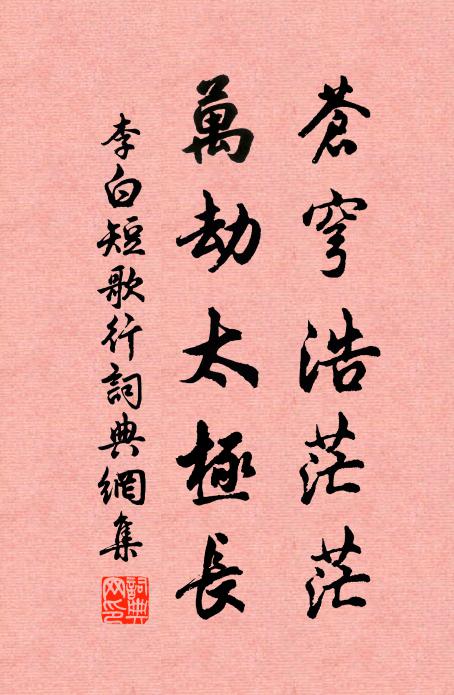 蒼穹浩茫茫
萬劫太極長
李白短歌行詞典網集
詞典
网印